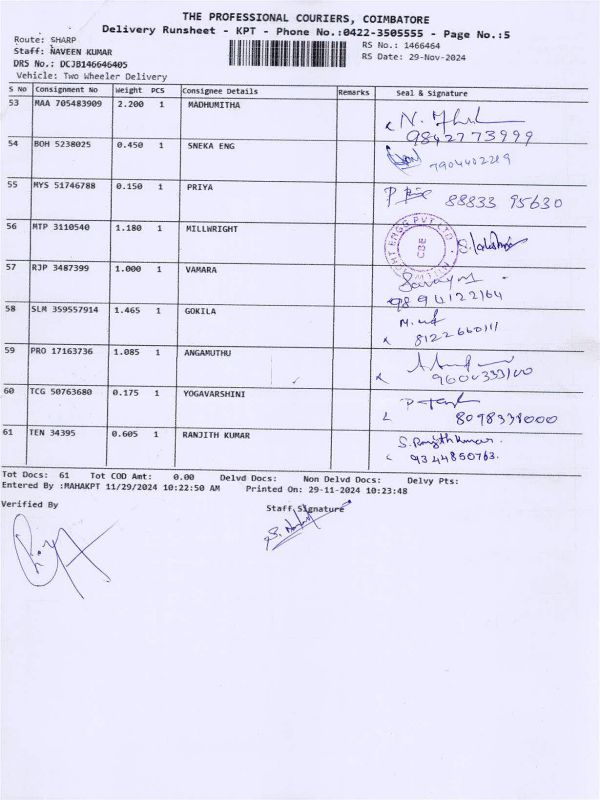 THE PROFESSIONAL COURIERS, COIMBATORE
Delivery Runsheet - KPT - Phone No.:0422-3505555 - Page No.:5
Route: SHARP
RS No.: 1466464
Staff: NAVEEN KUMAR
RS Date: 29-Nov-2024
DRS No.: DCJB146646405
Vehicle: Two Wheeler Delivery
S No Consignment No Weight PCS Consignee Details Remarks Seal & Signature
53 MAA 705483909 2.200 1 MADHUMITHA
9842773999
54 BOH 5238025 0.450 1 SNEKA ENG
7904402219
55 MYS 51746788 0.150 1 PRIYA 88833 95630
56 MTP 3110540 1.180 1 MILLWRIGHT
CBE
57 RJP 3487399 1.000 1 VAMARA
9894122164
58 SLM 359557914 1.465 1 GOKILA
8122660111
59 PRO 17163736 1.085 1 ANGAMUTHU
60 TCG 50763680 0.175 1 YOGAVARSHINI
8098338000
61 TEN 34395 0.605 1 RANJITH KUMAR S. Ranjith kumar.
9344850763.
Tot Docs: 61 Tot COD Amt: 0.00 Delvd Docs: Non Delvd Docs: Delvy Pts:
Entered By :MAHAKPT 11/29/2024 10:22:50 AM Printed On: 29-11-2024 10:23:48
Verified By
Staff Signature